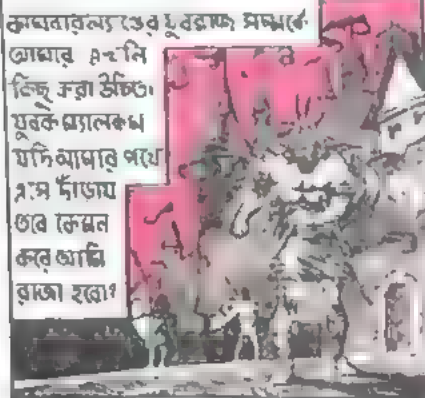 কামবারল্যান্ডের যুবরাজ সম্পর্কে
আমার এখনি
কিছু করা উচিত।
যুবক ম্যালকম
যদি আমার পথে
এসে দাঁড়ায়
তবে কেমন
করে আমি
রাজা হবো?